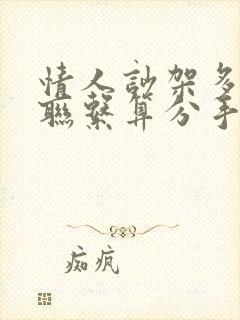 情人訬架多
聯繫算分手
痴疯